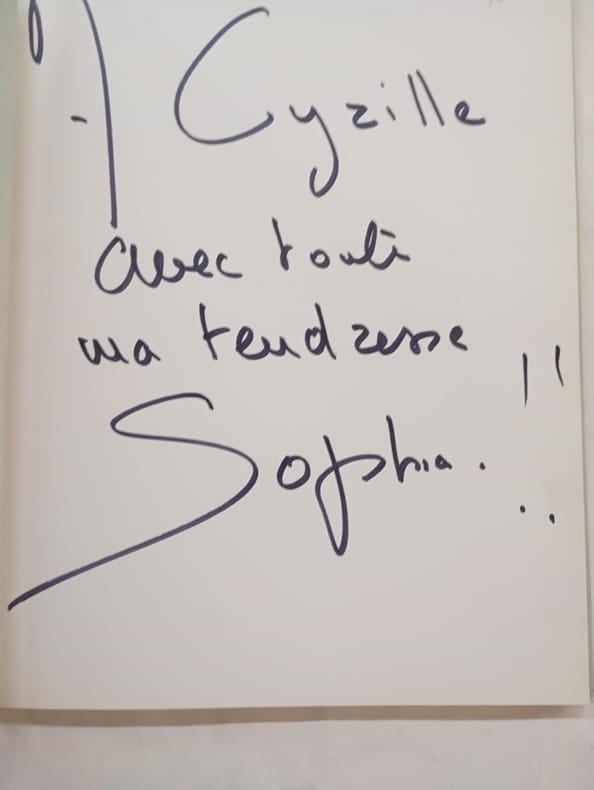 A Cyrille
avec toute
ma tendresse
Sophia. !!